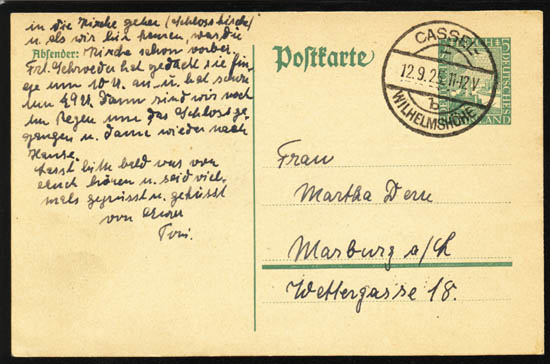 in die Kirche gehen (Schlosskirche)
u. als wir hin kamen, war die
Absender: Kirche schon vorbei.
Frl. Schroeder hat gedacht sie fin-
ge um 10 U. an u. hat schon
um 9 U. Dann sind wir noch
im Regen um das Schloss ge-
gangen u. dann wieder nach
Hause.
Lasst bitte bald was von
euch hören u. seid viel-
mals gegrüsst u. geküsst
von Eurer
Toni.
Postkarte
CASSEL
12.9.25. 11-12 V
b
WILHELMSHÖHE
5
DEUTSCHES
Frau
Martha Dern
Marburg a/L
Wettergasse 18.